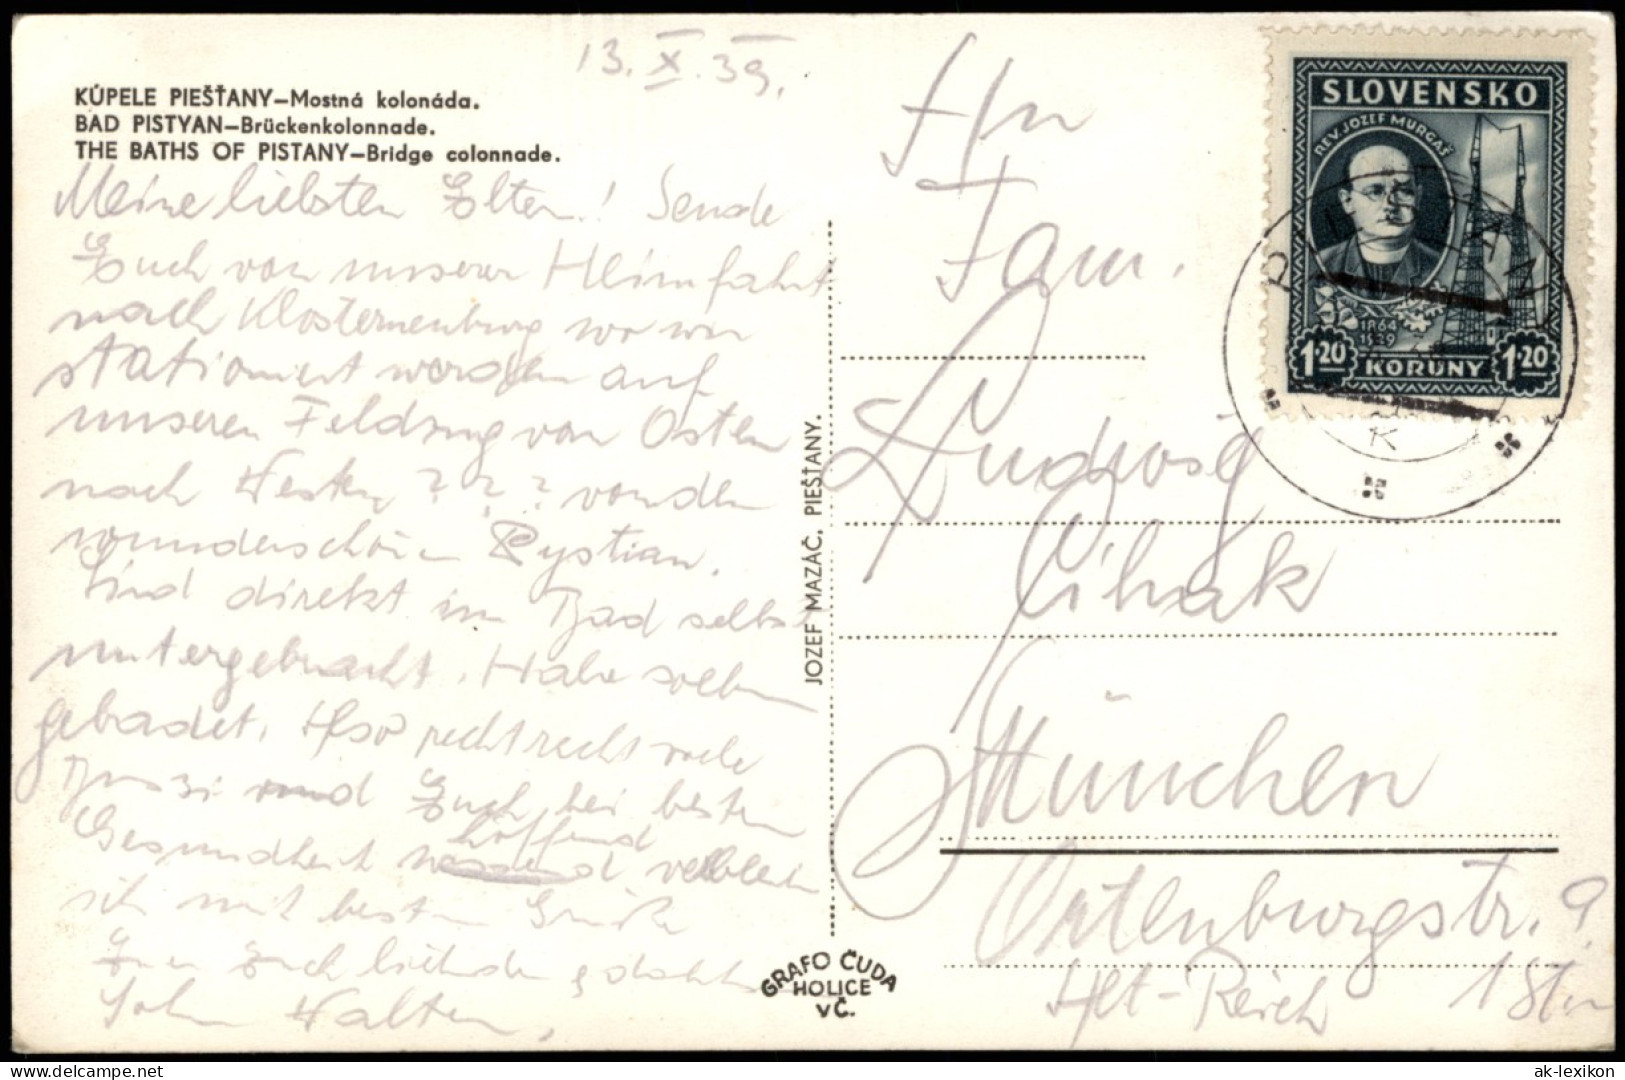 13. X. 39.
KÚPELE PIEŠŤANY—Mostná kolonáda.
BAD PISTYAN—Brückenkolonnade.
THE BATHS OF PISTANY—Bridge colonnade.
Meine liebsten Eltern! Sende
Euch von unserer Heimfahrt
nach Klosterneuburg wo wir
stationiert werden auf
unseren Feldzug von Osten
nach Westen ? ? ? von den
wunderschönen Pystian.
Sind direkt im Bad selbst
untergebracht. Habe soeben
gebadet. Also recht recht viele
Bussi und Euch bei besten
Gesundheit hoffend
sich mit besten Grüße
Euer Euch liebender
Sohn Walter.
JOZEF MAZÁČ. PIEŠŤANY.
GRAFO ČUDA
HOLICE
VČ.
SLOVENSKO
REV. JOZEF MURGAŠ
1864
1929
1·20 KORUNY 1·20
K
An
Fam.
Ludwig
Cihak
München
Ortenburgstr. 9
Alt-Reich